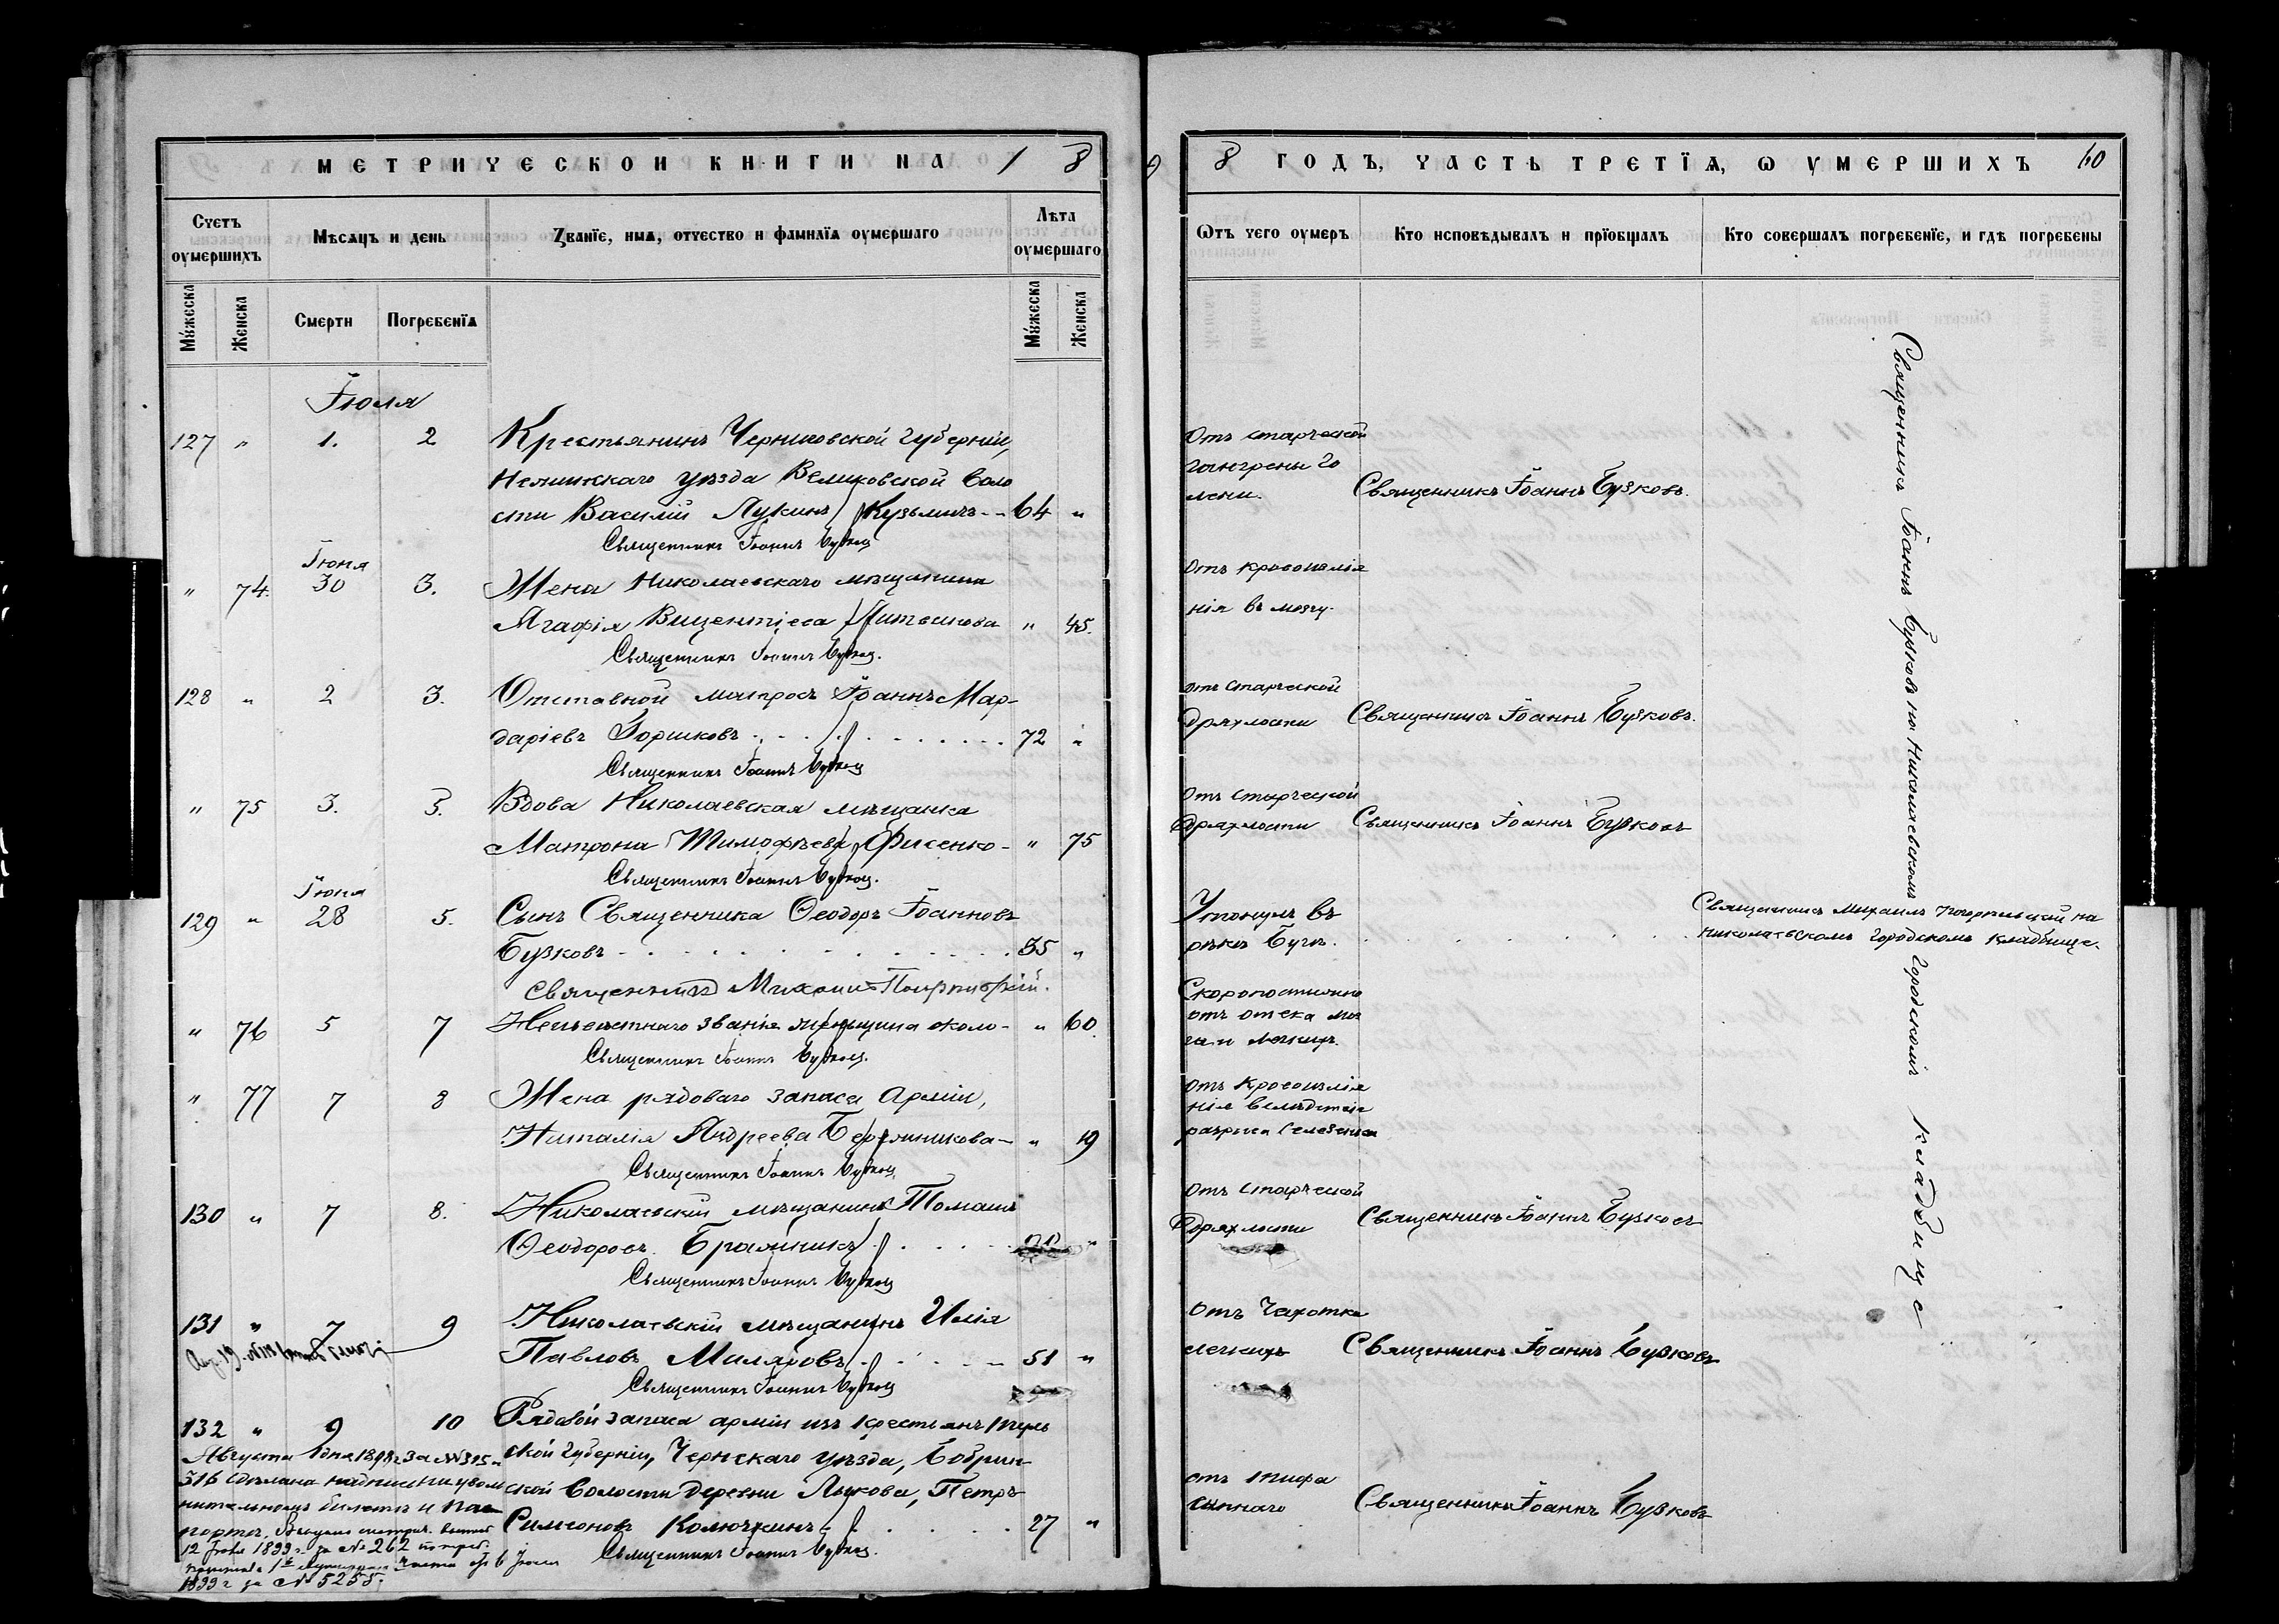 МЕТРИЧЕСКОЙ КНИГИ НА 18
Счетъ оумершихъ
Мѣсяцъ и день
Званїе, имя, отчество и фамилїя оумершаго
Лѣта оумершаго
Мужеска
Женска
Смерти
Погребенїя
Мужеска
Женска
Іюля
127 " 1. 2 Крестьянинъ Черниговской губерніи,
Нежинскаго уѣзда Великовской воло
сти Василій Лукинъ Кузьмичъ - - 64 "
Священникъ Іоаннъ Бузковъ
Іюня
" 74. 30 3. Жена Николаевскаго мѣщанина
Агафія Викентіева Литвинова " 45.
Священникъ Іоаннъ Бузковъ.
128 " 2 3. Отставной матросъ Іоаннъ Мар-
даріевъ Горшковъ 72 "
Священникъ Іоаннъ Бузковъ
" 75 3. 5. Вдова Николаевская мѣщанка
Матрона Тимофѣева Фисенко - " 75
Священникъ Іоаннъ Бузковъ.
Іюня
129 " 28 5. Сынъ Священника Ѳеодоръ Іоанновъ
Бузковъ 35 "
Священникъ Михаилъ
" 76 5 7 Неизвѣстнаго званія женщина около - " 60.
Священникъ Іоаннъ Бузковъ.
" 77 7 8 Жена рядоваго запаса арміи,
Наталія Андреева - " 19
Священникъ Іоаннъ Бузковъ
130 " 7 8. Николаевскій мѣщанинъ
Ѳеодоровъ "
Священникъ Іоаннъ Бузковъ
131 " 7 9 Николаевскій мѣщанинъ Илія
Павловъ Маляровъ 51 "
Священникъ Іоаннъ Бузковъ
132 " 9 10 Рядовой запаса арміи изъ крестьянъ Туль
ской губерніи, Чернскаго уѣзда, Бобрик
ской волости деревни Лыкова, Петръ
Симеоновъ Колючкинъ 27 "
Священникъ Іоаннъ Бузковъ.
Августа 1 дня 1898 г. за № 315 и
316 сдѣлана надпись на увол
нительномъ билетѣ и пас
портѣ.
12 Іюля 1899 г. за № 262 по треб.
части отъ 6 Іюля
1899 г за № 5255.
98 ГОДЪ, ЧАСТЬ ТРЕТЇЯ, Ѡ УМЕРШИХЪ 60
Ѡтъ чего оумеръ
Кто исповѣдывалъ и прїобщалъ
Кто совершалъ погребенїе, и гдѣ погребены
Отъ старческой
гангрены го
лени. Священникъ Іоаннъ Бузковъ.
Отъ кровоизлія
нія въ мозгу.
отъ старческой
дряхлости Священникъ Іоаннъ Бузковъ.
Отъ старческой
дряхлости Священникъ Іоаннъ Бузковъ
Утонулъ въ
рѣкѣ Бугѣ.
Священникъ Михаилъ на
Николаевскомъ городскомъ кладбище.
Скоропостижно
отъ отека моз
га и легкихъ.
Отъ кровоизлія
нія вслѣдствіе
разрыва селезенки
Отъ старческой
дряхлости Священникъ Іоаннъ Бузковъ
Отъ чахотки
легкихъ Священникъ Іоаннъ Бузковъ
отъ тифа
сыпнаго Священникъ Іоаннъ Бузковъ
Священникъ Іоаннъ Бузковъ на Николаевскомъ городскомъ кладбище